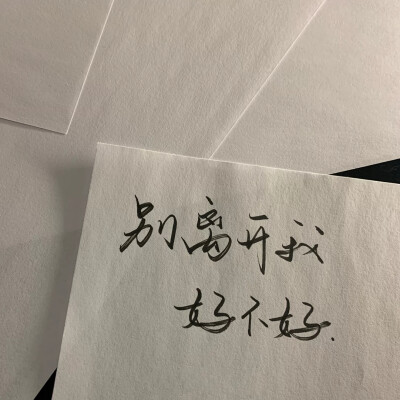 别离开我
好不好.